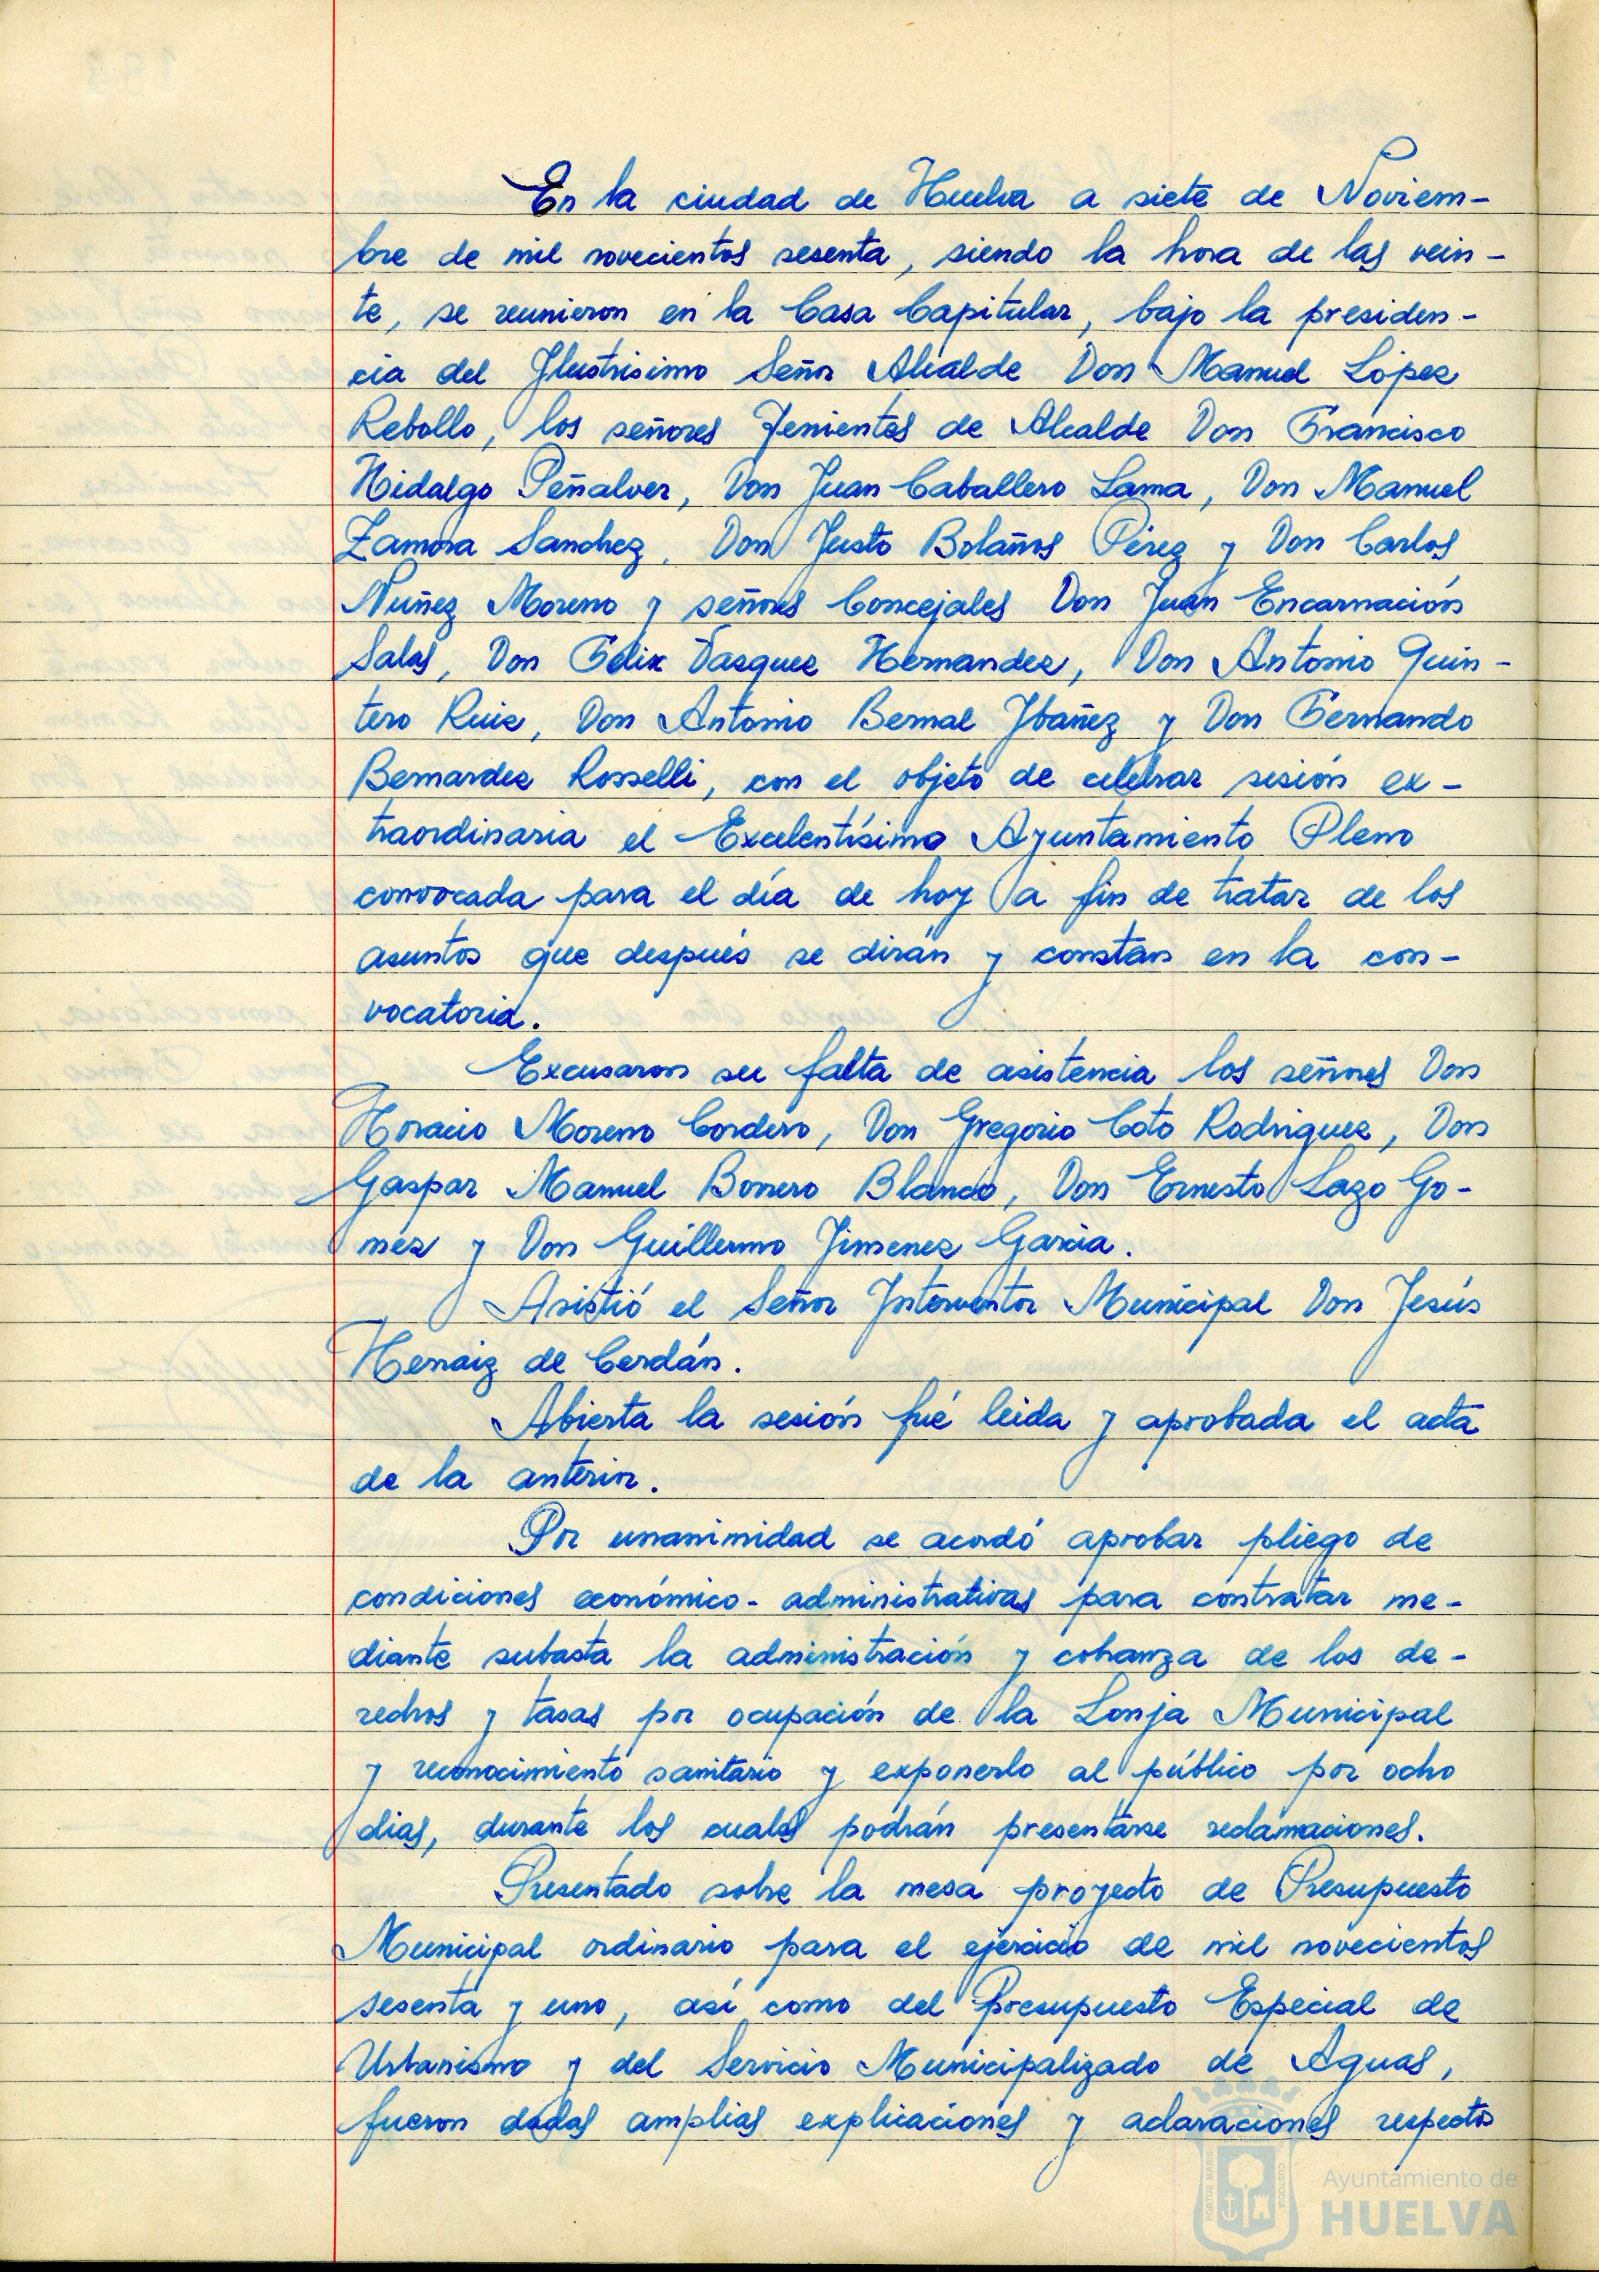 En la ciudad de Huelva a siete de Noviem-
bre de mil novecientos sesenta, siendo la hora de las vein-
te, se reunieron en la Casa Capitular, bajo la presiden-
cia del Ilustrisimo Señor Alcalde Don Manuel López
Rebollo, los señores Tenientes de Alcalde Don Francisco
Hidalgo Peñalver, Don Juan Caballero Lama, Don Manuel
Zamora Sanchez, Don Justo Bolaños Pérez y Don Carlos
Nuñez Moreno y señores Concejales Don Juan Encarnación
Salas, Don Felix Vasquez Hernandez, Don Antonio Quin-
tero Ruiz, Don Antonio Bernal Ibañez y Don Fernando
Bernardez Rosselli, con el objeto de celebrar sesión ex-
traordinaria el Excelentísimo Ayuntamiento Pleno
convocada para el día de hoy a fin de tratar de los
asuntos que después se dirán y constan en la con-
vocatoria.
Excusaron su falta de asistencia los señores Don
Horacio Moreno Cordero, Don Gregorio Coto Rodriguez, Don
Gaspar Manuel Borrero Blanco, Don Ernesto Lazo Go-
mez y Don Guillermo Jimenez Garcia.
Asistió el Señor Interventor Municipal Don Jesús
Hernaiz de Cerdán.
Abierta la sesión fué leida y aprobada el acta
de la anterior.
Por unanimidad se acordó aprobar pliego de
condiciones económico-administrativas para contratar me-
diante subasta la administración y cobranza de los de-
rechos y tasas por ocupación de la Lonja Municipal
y reconocimiento sanitario y exponerlo al público por ocho
dias, durante los cuales podrán presentarse reclamaciones.
Presentado sobre la mesa proyecto de Presupuesto
Municipal ordinario para el ejercicio de mil novecientos
sesenta y uno, así como del Presupuesto Especial de
Urbanismo y del Servicio Municipalizado de Aguas,
fueron dadas amplias explicaciones y aclaraciones respecto
Ayuntamiento de
HUELVA